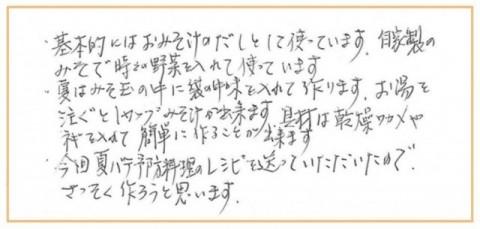 ・基本的にはおみそ汁のだしとして使っています。自家製の
みそで時々の野菜を入れて使っています
・夏はみそ玉の中に袋の中味を入れて作ります。お湯を
注ぐと1カップみそ汁が出来ます。具材は乾燥ワカメや
を入れて簡単に作ることが出来ます
・今回夏バテ予防料理のレシピを送っていただいたので、
さっそく作ろうと思います。